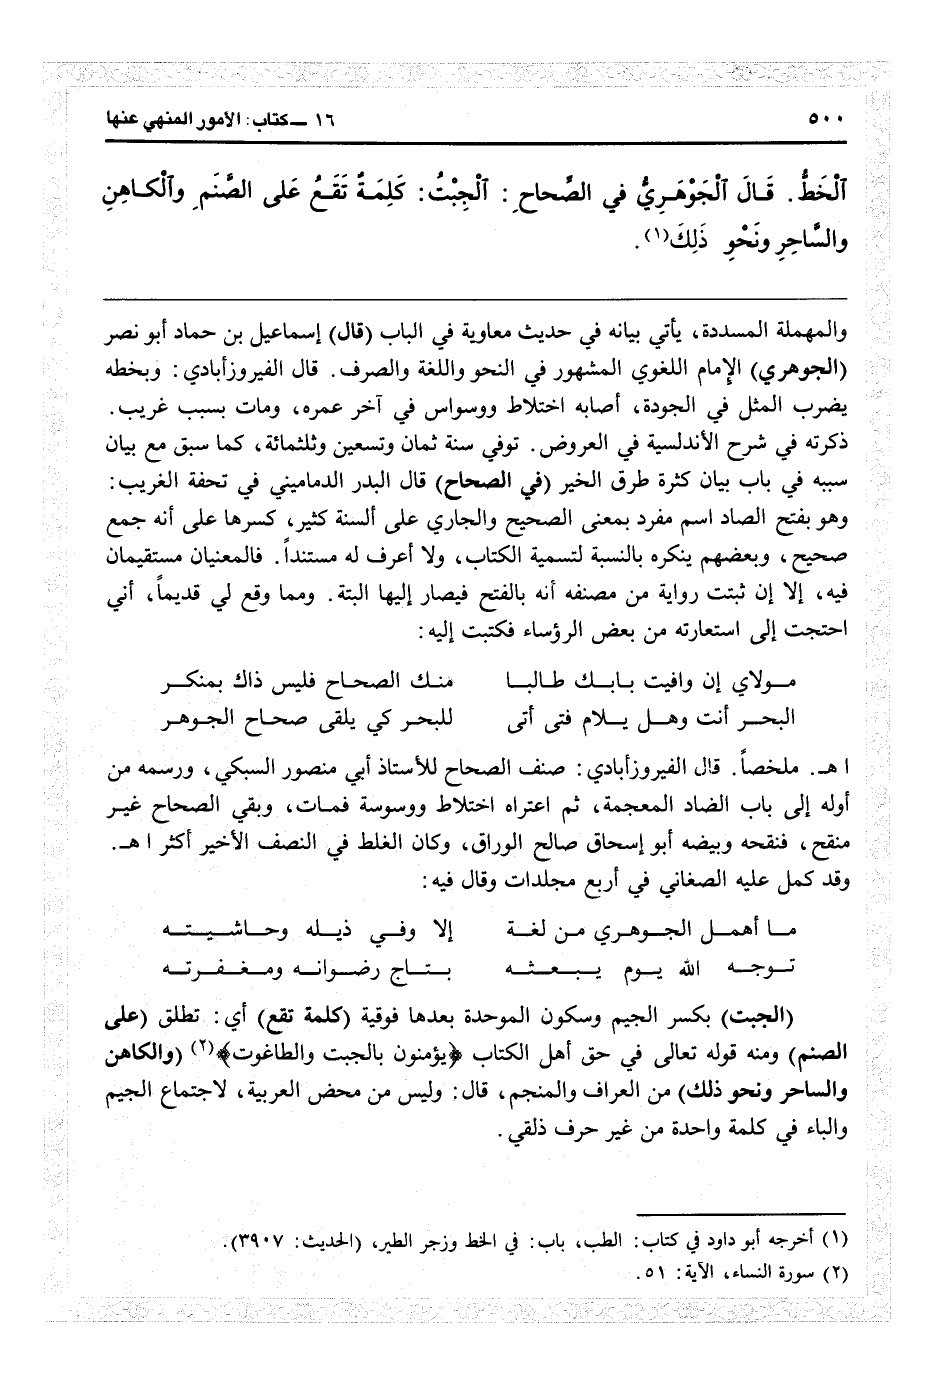 ٥٠٠ ١٦ ــ كتاب: الأمور المنهي عنها
ٱلْخَطُّ. قَالَ ٱلْجَوْهَرِيُّ في الصَّحاحِ: ٱلْجِبْتُ: كَلِمَةٌ تَقَعُ عَلى الصَّنَمِ وٱلْكاهِنِ
والسَّاحِرِ ونَحْوِ ذَلِكَ(١).
والمهملة المسددة، يأتي بيانه في حديث معاوية في الباب (قال) إسماعيل بن حماد أبو نصر
(الجوهري) الإمام اللغوي المشهور في النحو واللغة والصرف. قال الفيروزأبادي: وبخطه
يضرب المثل في الجودة، أصابه اختلاط ووسواس في آخر عمره، ومات بسبب غريب.
ذكرته في شرح الأندلسية في العروض. توفي سنة ثمان وتسعين وثلثمائة، كما سبق مع بيان
سببه في باب بيان كثرة طرق الخير (في الصحاح) قال البدر الدماميني في تحفة الغريب:
وهو بفتح الصاد اسم مفرد بمعنى الصحيح والجاري على ألسنة كثير، كسرها على أنه جمع
صحيح، وبعضهم ينكره بالنسبة لتسمية الكتاب، ولا أعرف له مستنداً. فالمعنيان مستقيمان
فيه، إلا إن ثبتت رواية من مصنفه أنه بالفتح فيصار إليها البتة. ومما وقع لي قديماً، أني
احتجت إلى استعارته من بعض الرؤساء فكتبت إليه:
مولاي إن وافيت بابك طالبا منك الصحاح فليس ذاك بمنكر
البحر أنت وهل يلام فتى أتى للبحر كي يلقى صحاح الجوهر
ا هـ. ملخصاً. قال الفيروزأبادي: صنف الصحاح للأستاذ أبي منصور السبكي، ورسمه من
أوله إلى باب الضاد المعجمة، ثم اعتراه اختلاط ووسوسة فمات، وبقي الصحاح غير
منقح، فنقحه وبيضه أبو إسحاق صالح الوراق، وكان الغلط في النصف الأخير أكثر ا هـ.
وقد كمل عليه الصغاني في أربع مجلدات وقال فيه:
ما أهمل الجوهري من لغة إلا وفي ذيله وحاشيته
توجه الله يوم يبعثه بتاج رضوانه ومغفرته
(الجبت) بكسر الجيم وسكون الموحدة بعدها فوقية (كلمة تقع) أي: تطلق (على
الصنم) ومنه قوله تعالى في حق أهل الكتاب ﴿يؤمنون بالجبت والطاغوت﴾(٢) (والكاهن
والساحر ونحو ذلك) من العراف والمنجم، قال: وليس من محض العربية، لاجتماع الجيم
والباء في كلمة واحدة من غير حرف ذلقي.
(١) أخرجه أبو داود في كتاب: الطب، باب: في الخط وزجر الطير، (الحديث: ٣٩٠٧).
(٢) سورة النساء، الآية: ٥١.